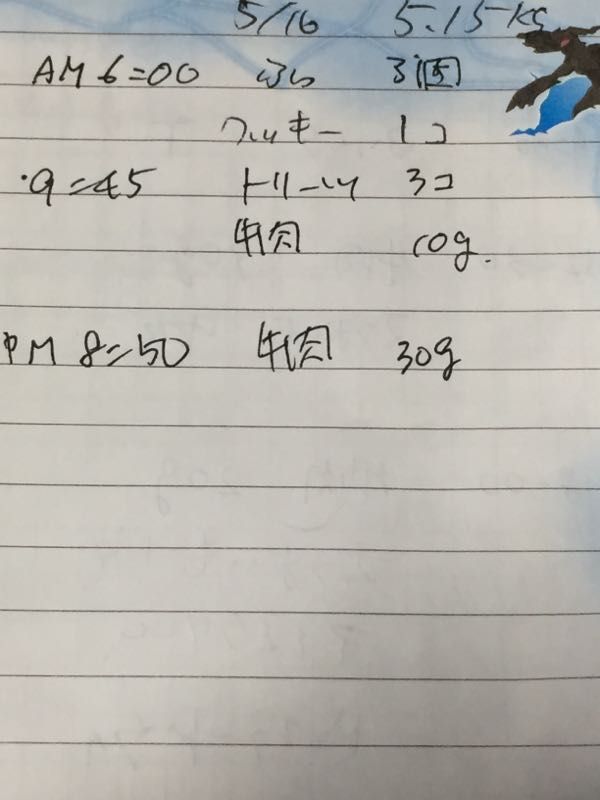 5/16 5.15kg
AM 6:00 3回
クッキー 1コ
・9:45 トリーツ 3コ
牛肉 10g.
PM 8:50 牛肉 30g